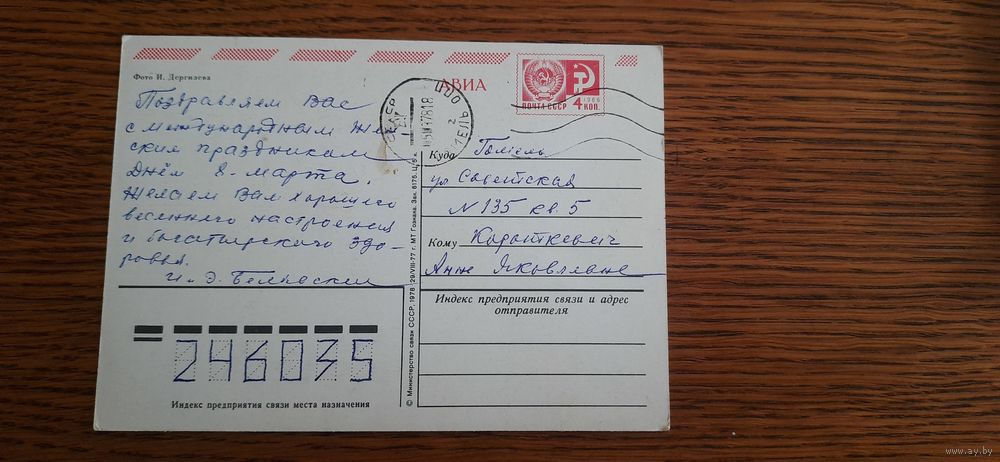 Фото И. Дергилева
АВИА
ПОЧТА СССР
1966
4 КОП.
Поздравляем Вас
с международным Жен
ским праздником
Днём 8-марта.
Желаем Вам хорошего
весеннего настроения
и богатырского здо-
ровья.
Куда Гомель
ул Советская
N 135 кв. 5
Кому Короткевич
Анне Яковлевне
Индекс предприятия связи и адрес
отправителя
246035
Индекс предприятия связи места назначения
© Министерство связи СССР, 1978 29/VIII-77 г. МТ Гознака. Зак. 6175. Ц. 5 к.
www.ay.by